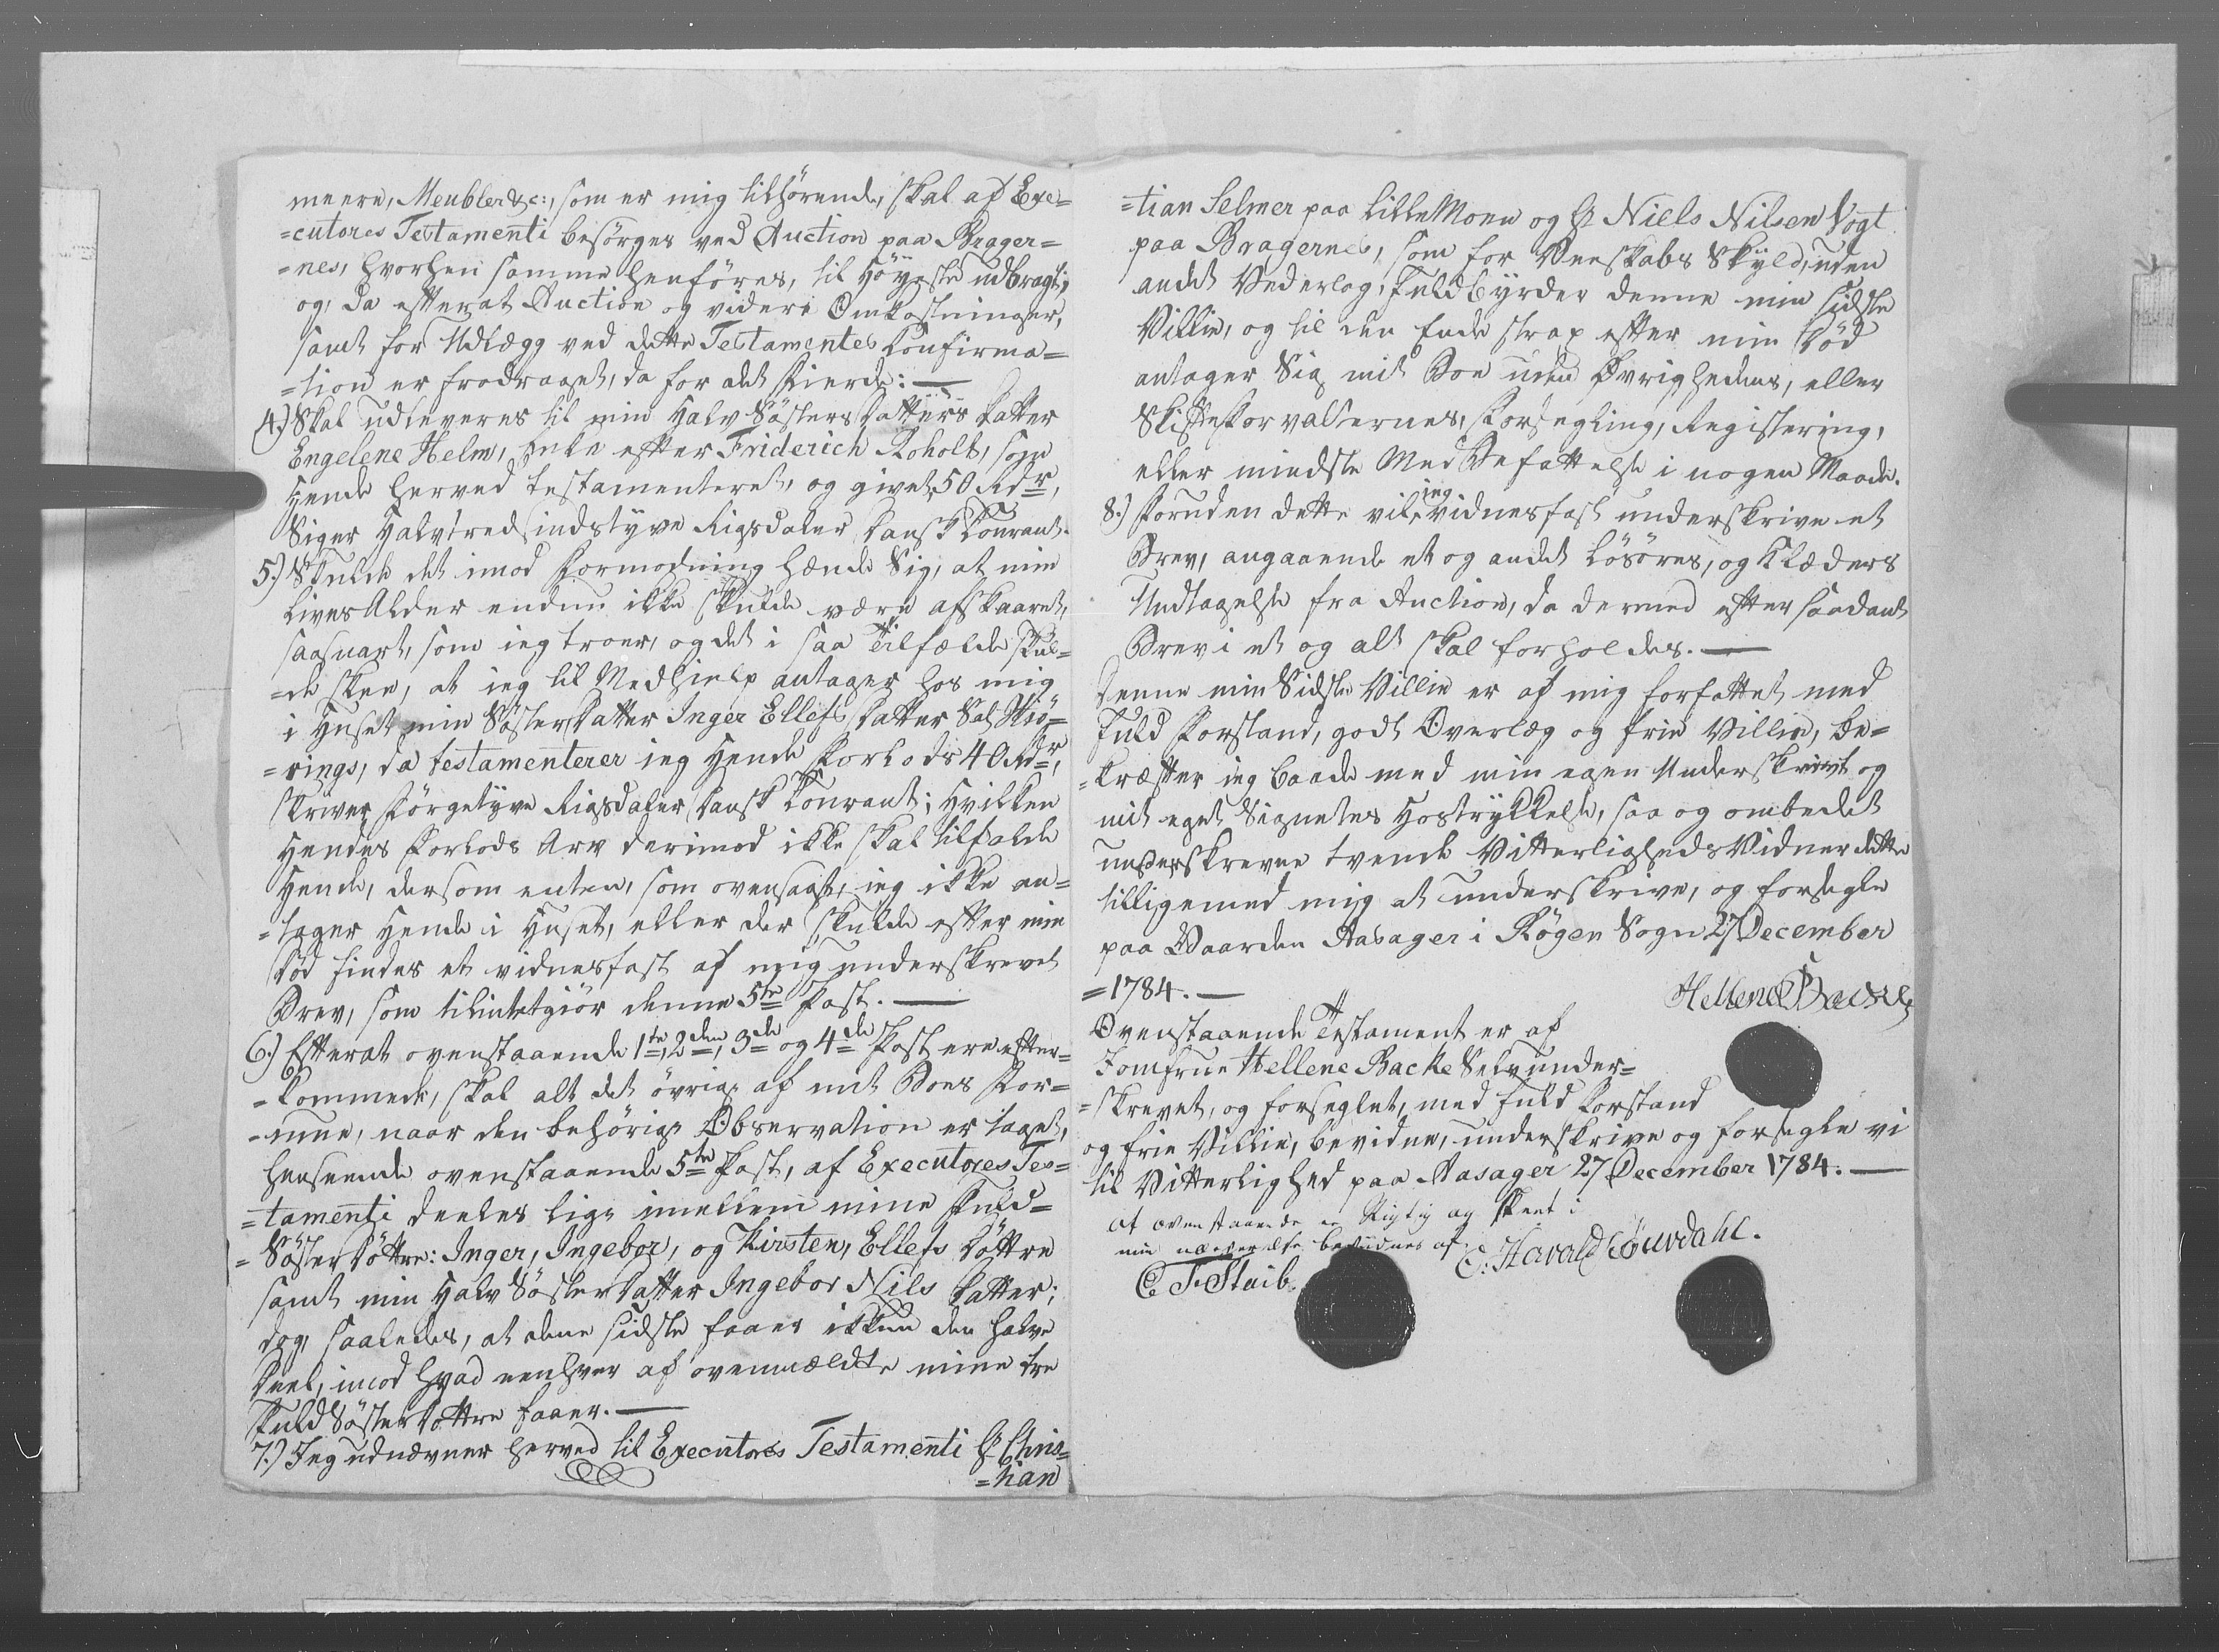 meere, Meubler &c:, som er mig tilhørende, skal af Exe=
=cutores Testamenti besørges ved Auction paa Brager=
=nes, hvorhen samme henføres, til Høyeste udbragt;
og, da efterat Auction og videre Omkostninger,
samt for Udlægg ved dette Testamentes Confirma=
=tion er fradraget, da for det Fierde: —
4.) Skal udleveres til min Halv Søsters Datters Datter
Engelene Helm, Enke efter Friderich Roholt, som
Hende herved testamenteret, og givet, 50 Rdr,
Siger Halvtredsindstyve Rigsdaler Dansk Courant.
5.) Skulde det imod Formodning hænde Sig, at min
Lives Alder endnu ikke skulde være afskaaret,
saasnart, som ieg troer, og det i saa Tilfælde skul=
=de skee, at ieg til Medhielp antager hos mig
i Huset min Søster Datter Inger Ellefs Datter Sal:
=rings, da testamenterer ieg Hende Forlods 40 Rdr,
skriver Førgetyve Rigsdaler Dansk Courant; Hvilken
Hendes Forlods Arv derimod ikke skal tilfalde
Hende, dersom enten, som ovensagt, ieg ikke an=
=tager Hende i Huset, eller der skulde efter min
Død findes et vidnesfast af mig underskrevet
Brev, som tilintetgiør denne 5te Post. —
6.) Efterat ovenstaaende 1te, 2den, 3de og 4de Post ere efter=
=kommede, skal alt det øvrige af mit Boes For=
=mue, naar den behørige Observation er taget,
henseende ovenstaaende 5te Post, af Executores Tes=
=tamenti deeles lige imellem mine Fuld=
=Søster Døttre: Inger, Ingebor, og Kirsten, Ellefs Døttre
samt min Halv Søster Datter Ingebor Nils Datter;
dog, saaledes, at denne sidste faaer ikkun den halve
Deel, imod hvad eenhver af ovenmeldte mine tre
Fuld Søster Døttre faaer. —
7.) Ieg udnævner herved til Executores Testamenti Hr Chris=
=tian
=tian Selmer paa Lille Moen og Hr Niels Nilsen Vogt
paa Bragernes, som for Venskabs Skyld, uden
andet Vederlag, Fuldbyrder denne min sidste
Villie, og til den Ende strax efter min Død
antager Sig mit Boe uden Øvrighedens, eller
Skifteforvalternes, Forsegling, Registering,
eller mindste Med Befattelse i nogen Maade.
8.) Foruden dette vil ieg vidnesfast underskrive et
Brev, angaaende et og andet Løsøres, og Klæders
Undtagelse fra Auction, da dermed efter saadant
Brev i et og alt skal forholdes. —
Denne min Sidste Villie er af mig forfattet med
Fuld Forstand, godt Overlæg og frie Villie, be=
=kræfter ieg baade med min egen Underskrivt og
mit eget Signetes Hostrykkelse, saa og ombedet
underskrevne tvende Vitterligheds Vidner dette
tilligemed mig at underskrive, og forsegle
paa Gaarden Aasager i Røgen Sogn 27 December
=1784. —
Hellene Backe
Ovenstaaende Testament er af
Jomfrue Hellene Backe Selv under=
=skrevet, og forseglet, med fuld Forstand
og frie Villie, bevidne, underskrive og forsegle vi
til Vitterlighed paa Aasager 27 December 1784. —
At ovenstaaende er Rigtig og Skeet i
min nærværelse bevidnes af
C: Harald Tourdahl.
C F Staib